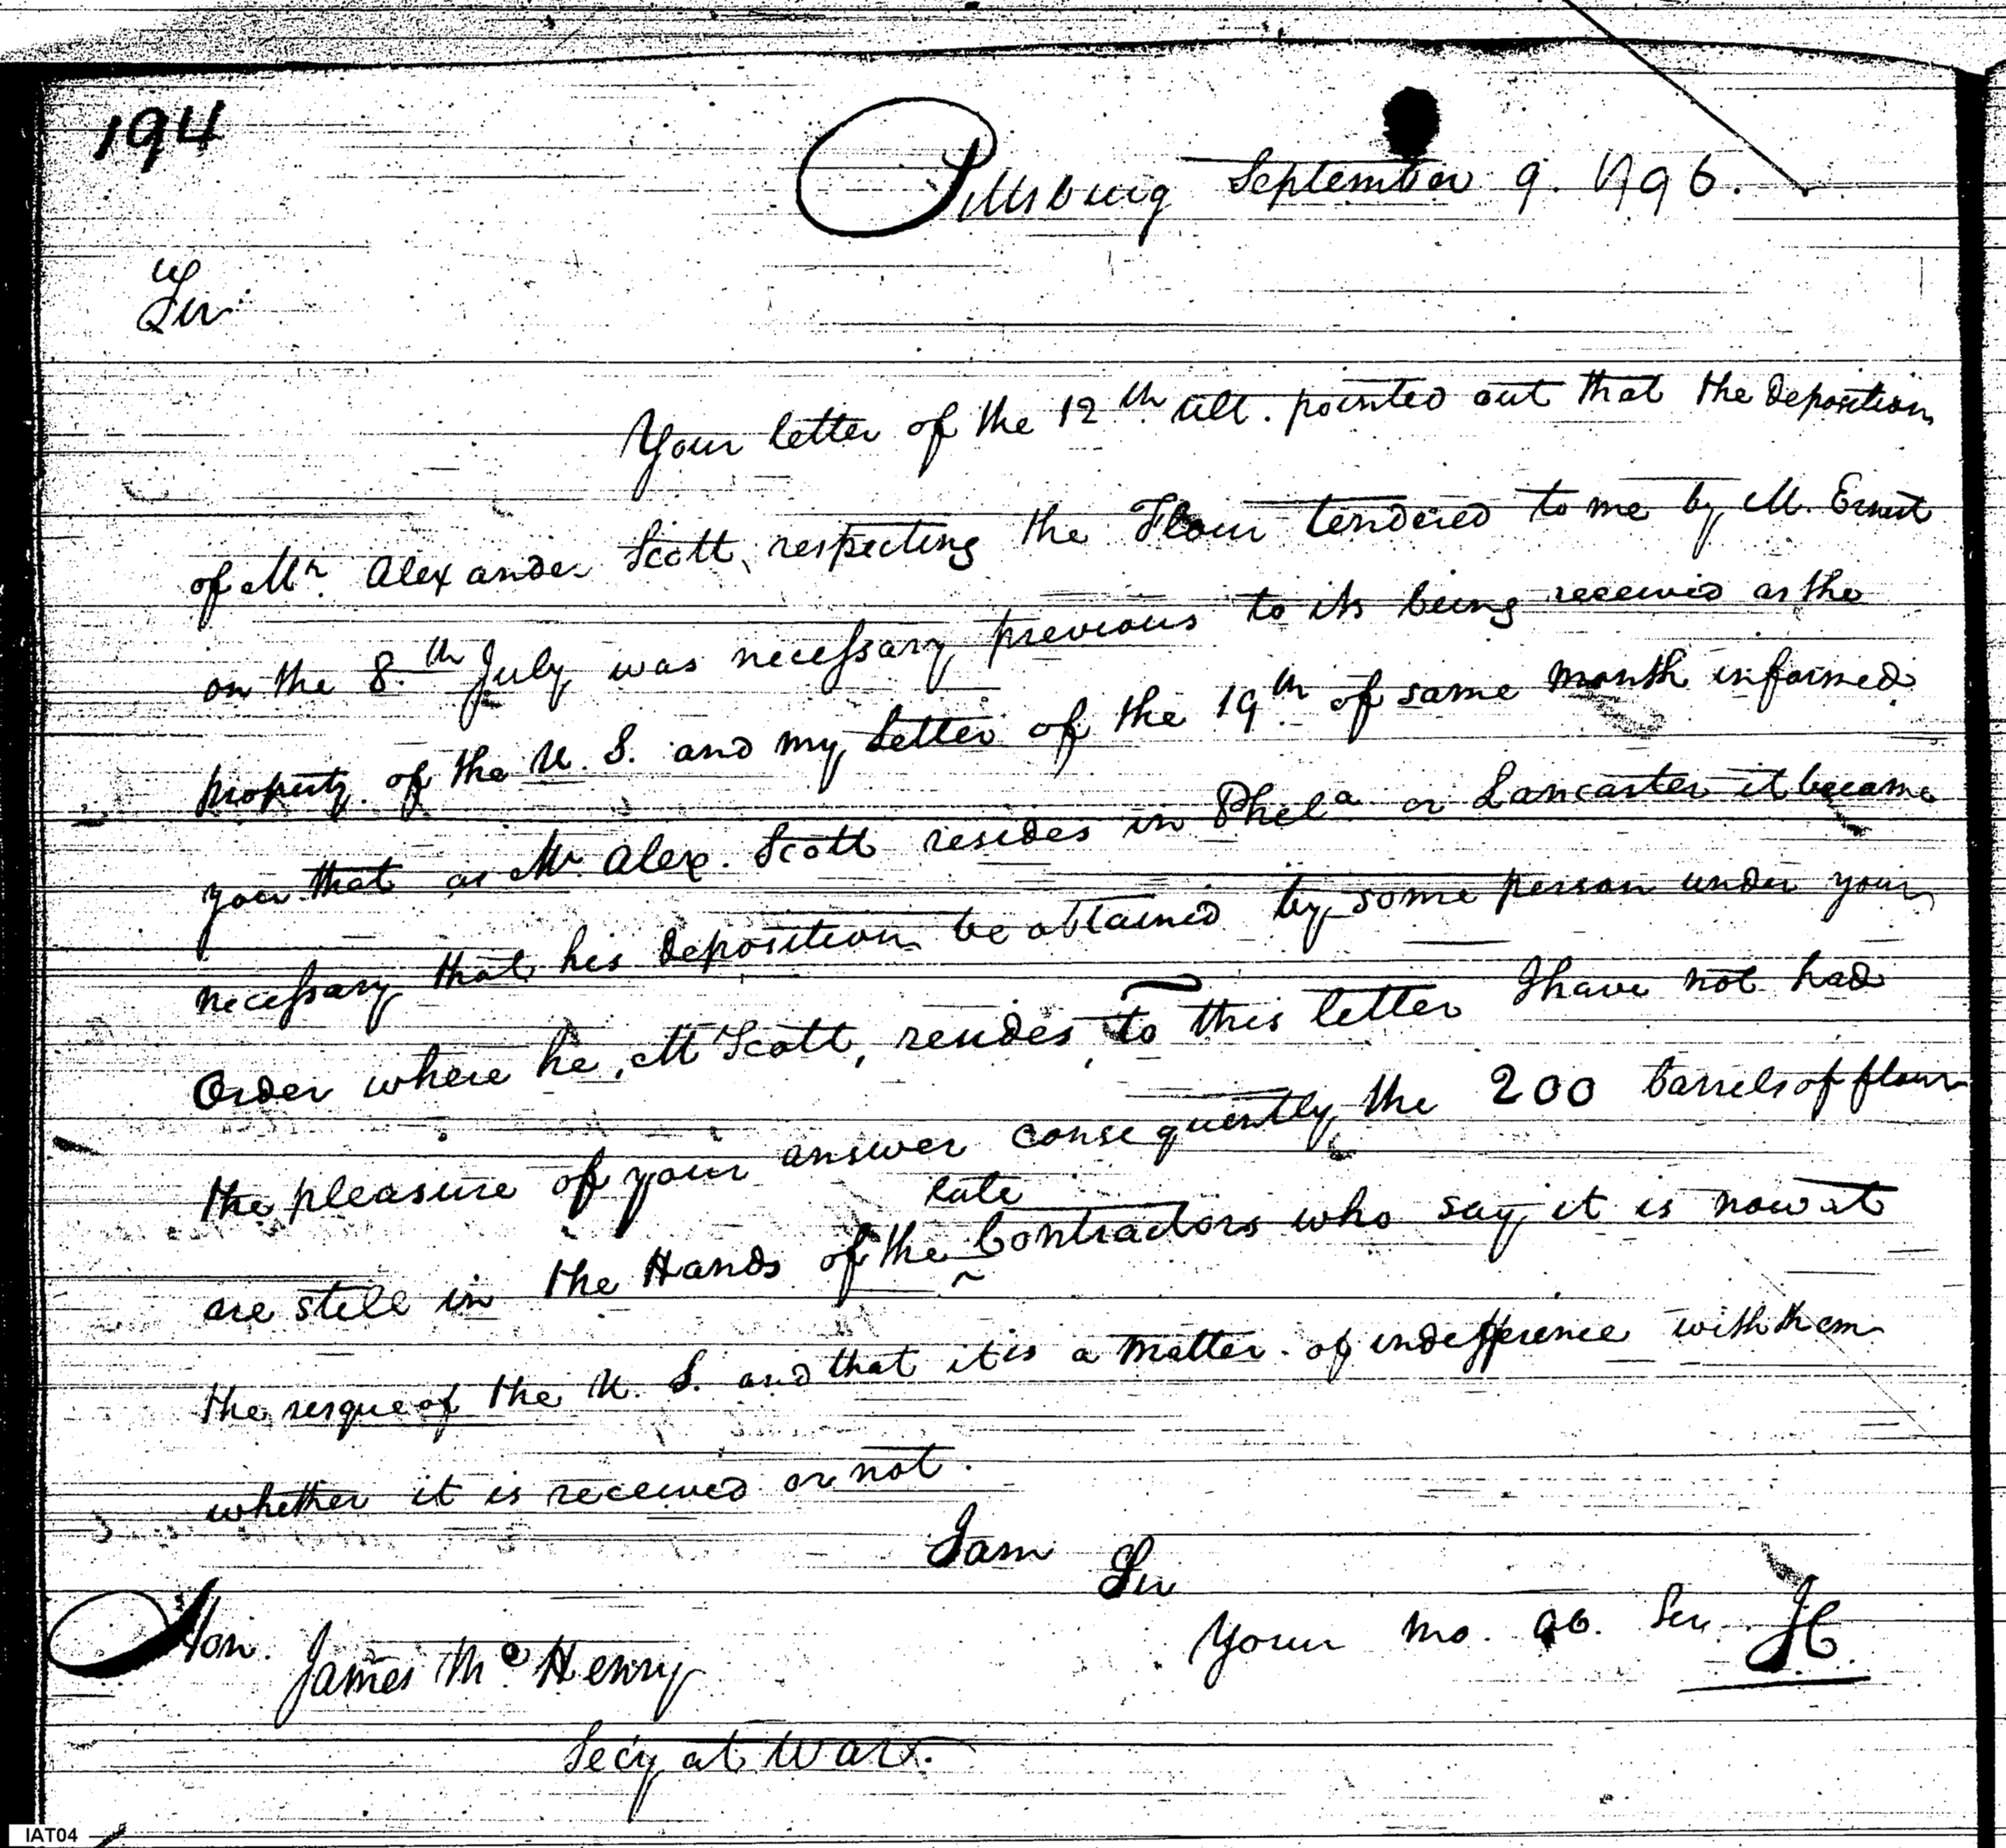 194
Pittsburg September 9. 1796.
Sir
Your letter of the 12th. ult. pointed out that the deposition
of Mr. Alexander Scott, respecting the Flour tendered to me by M. Ernest
on the 8.th July was necessary previous to its being received as the
property of the U. S. and my letter of the 19th of same month informed
you that as Mr. Alex. Scott resides in Phela or Lancaster it became
necessary that his deposition be obtained by some person under your
Order where he, Mr Scott, resides, to this letter I have not had
the pleasure of your answer consequently the 200 barrels of flour
late
are still in the Hands of the Contractors who say it is now at
the resque of the U. S. and that it is a matter of indefference with them
whether it is received or not.
I am
Sir
Your mo. ob. Ser. JC.
Hon. James McHenry
Secy at War.
IAT04